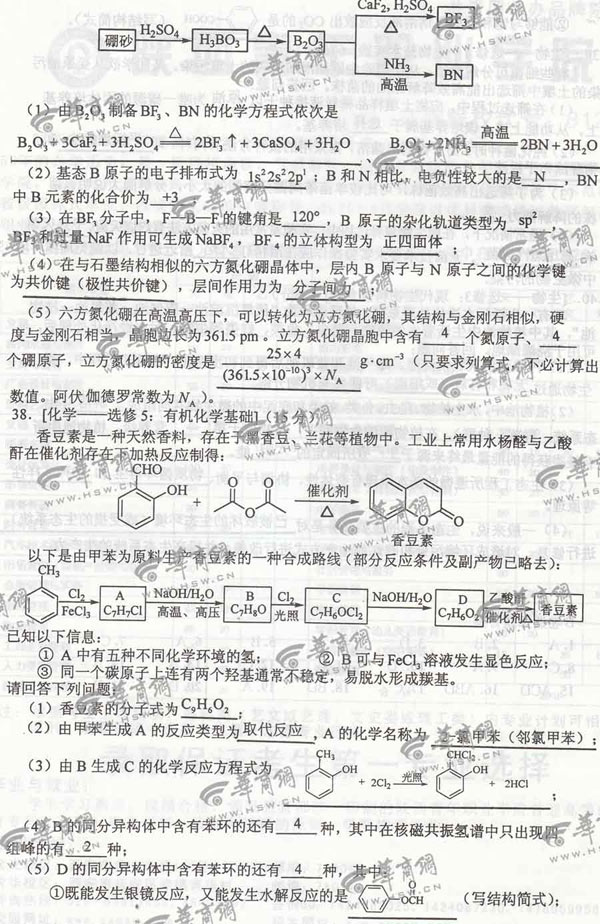 CaF₂, H₂SO₄
BF₃
硼砂 H₂SO₄ H₃BO₃ △ B₂O₃ △
NH₃
高温
BN
(1)由B₂O₃制备BF₃、BN的化学方程式依次是
B₂O₃+3CaF₂+3H₂SO₄ △ 2BF₃↑+3CaSO₄+3H₂O B₂O₃+2NH₃ 高温 2BN+3H₂O
(2)基态B原子的电子排布式为 1s²2s²2p¹ ;B和N相比,电负性较大的是 N ,BN
中B元素的化合价为 +3
(3)在BF₃分子中,F—B—F的键角是 120° ,B原子的杂化轨道类型为 sp² ,
BF₃和过量NaF作用可生成NaBF₄,BF₄⁻的立体构型为 正四面体 ;
(4)在与石墨结构相似的六方氮化硼晶体中,层内B原子与N原子之间的化学键
为共价键(极性共价键),层间作用力为 分子间力 ;
(5)六方氮化硼在高温高压下,可以转化为立方氮化硼,其结构与金刚石相似,硬
度与金刚石相当,晶胞边长为361.5 pm。立方氮化硼晶胞中含有 4 个氮原子、 4
个硼原子,立方氮化硼的密度是 25×4 / (361.5×10⁻¹⁰)³×N_A g·cm⁻³(只要求列算式,不必计算出
数值。阿伏伽德罗常数为N_A)。
38.[化学——选修5:有机化学基础](15分)
香豆素是一种天然香料,存在于黑香豆、兰花等植物中。工业上常用水杨醛与乙酸
酐在催化剂存在下加热反应制得:
CHO
OH + O O O 催化剂 △ O O
香豆素
以下是由甲苯为原料生产香豆素的一种合成路线(部分反应条件及副产物已略去):
CH₃
Cl₂ FeCl₃ A C₇H₇Cl NaOH/H₂O 高温、高压 B C₇H₈O Cl₂ 光照 C C₇H₆OCl₂ NaOH/H₂O D C₇H₆O₂ 乙酸酐 催化剂△ 香豆素
已知以下信息:
① A中有五种不同化学环境的氢; ② B可与FeCl₃溶液发生显色反应;
③ 同一个碳原子上连有两个羟基通常不稳定,易脱水形成羰基。
请回答下列问题:
(1)香豆素的分子式为 C₉H₆O₂ ;
(2)由甲苯生成A的反应类型为 取代反应 ,A的化学名称为 2-氯甲苯(邻氯甲苯);
(3)由B生成C的化学反应方程式为 CH₃ OH + 2Cl₂ 光照 CHCl₂ OH + 2HCl
;
(4)B的同分异构体中含有苯环的还有 4 种,其中在核磁共振氢谱中只出现四
组峰的有 2 种;
(5)D的同分异构体中含有苯环的还有 4 种,其中:
①既能发生银镜反应,又能发生水解反应的是 O OCH (写结构简式);
华商网
WWW.HSW.CN